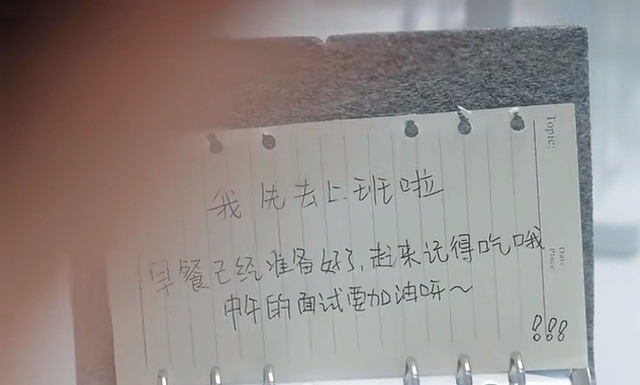 我先去上班啦
早餐已经准备好了,起来记得吃哦
中午的面试要加油呀~
Topic:
Date
Place